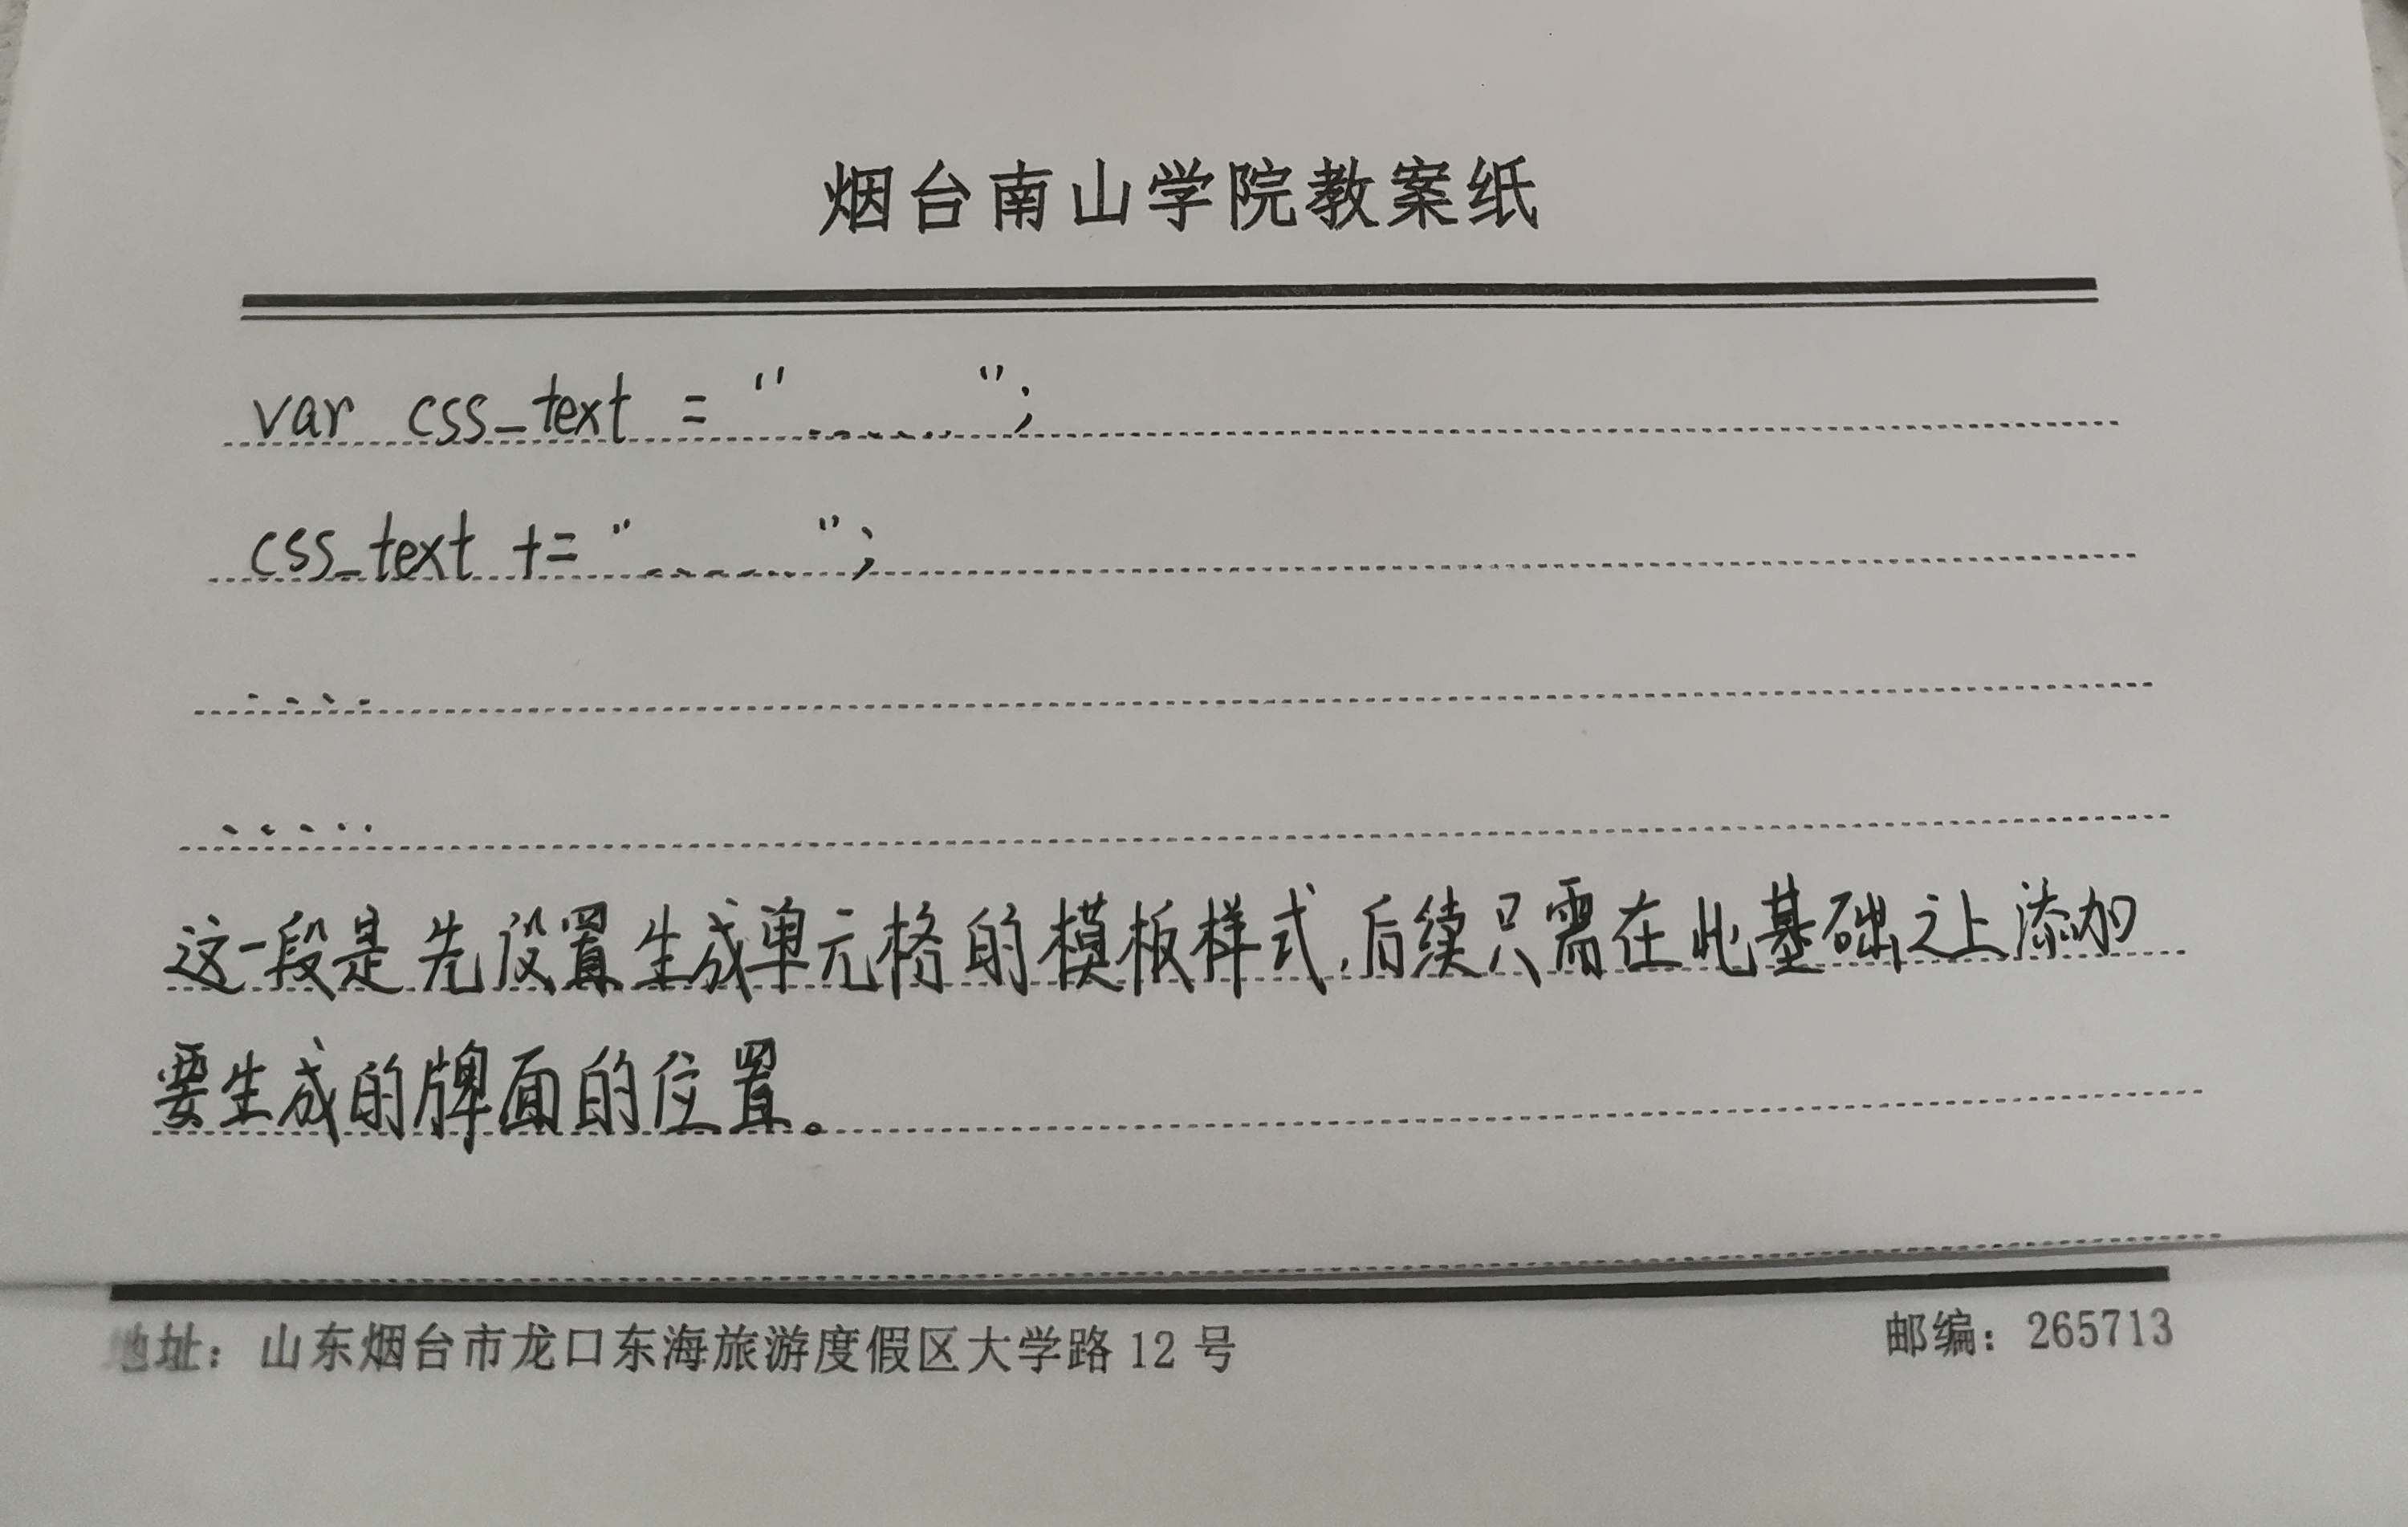 烟台南山学院教案纸
var css_text = "......";
css_text += "......";
....
.....
这一段是先设置生成单元格的模板样式,后续只需在此基础之上添加
要生成的牌面的位置。
地址：山东烟台市龙口东海旅游度假区大学路12号 邮编：265713